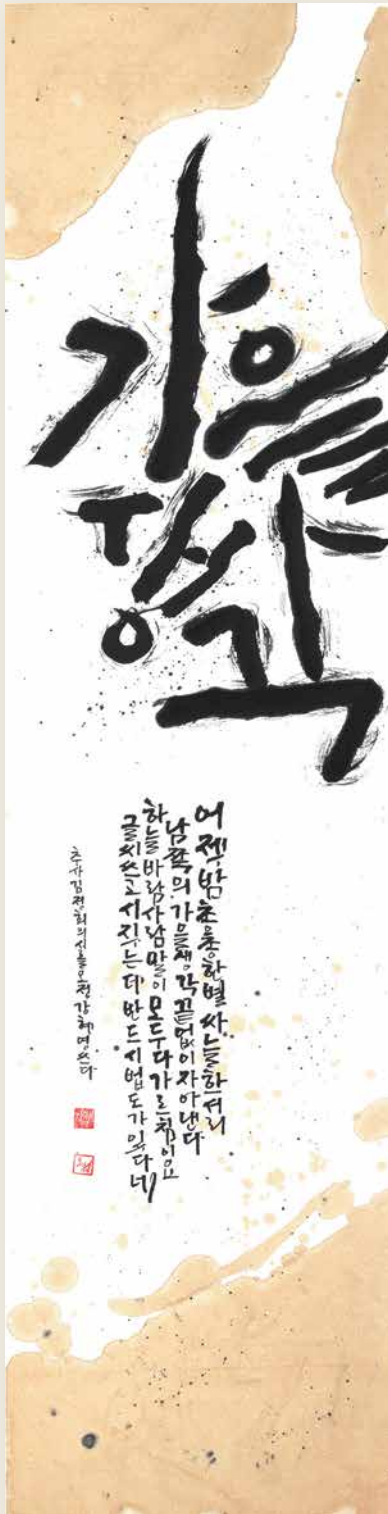 가을
생각
어젯밤 초롱한별 싸늘한서리
남쪽의 가을생각 끝없이 자아낸다
하늘바람사람말이 모두다 가르침이요
글씨쓰고 시짓는데 반드시 법도가 있다네
추사 김정희의 시를 강혜영쓰다